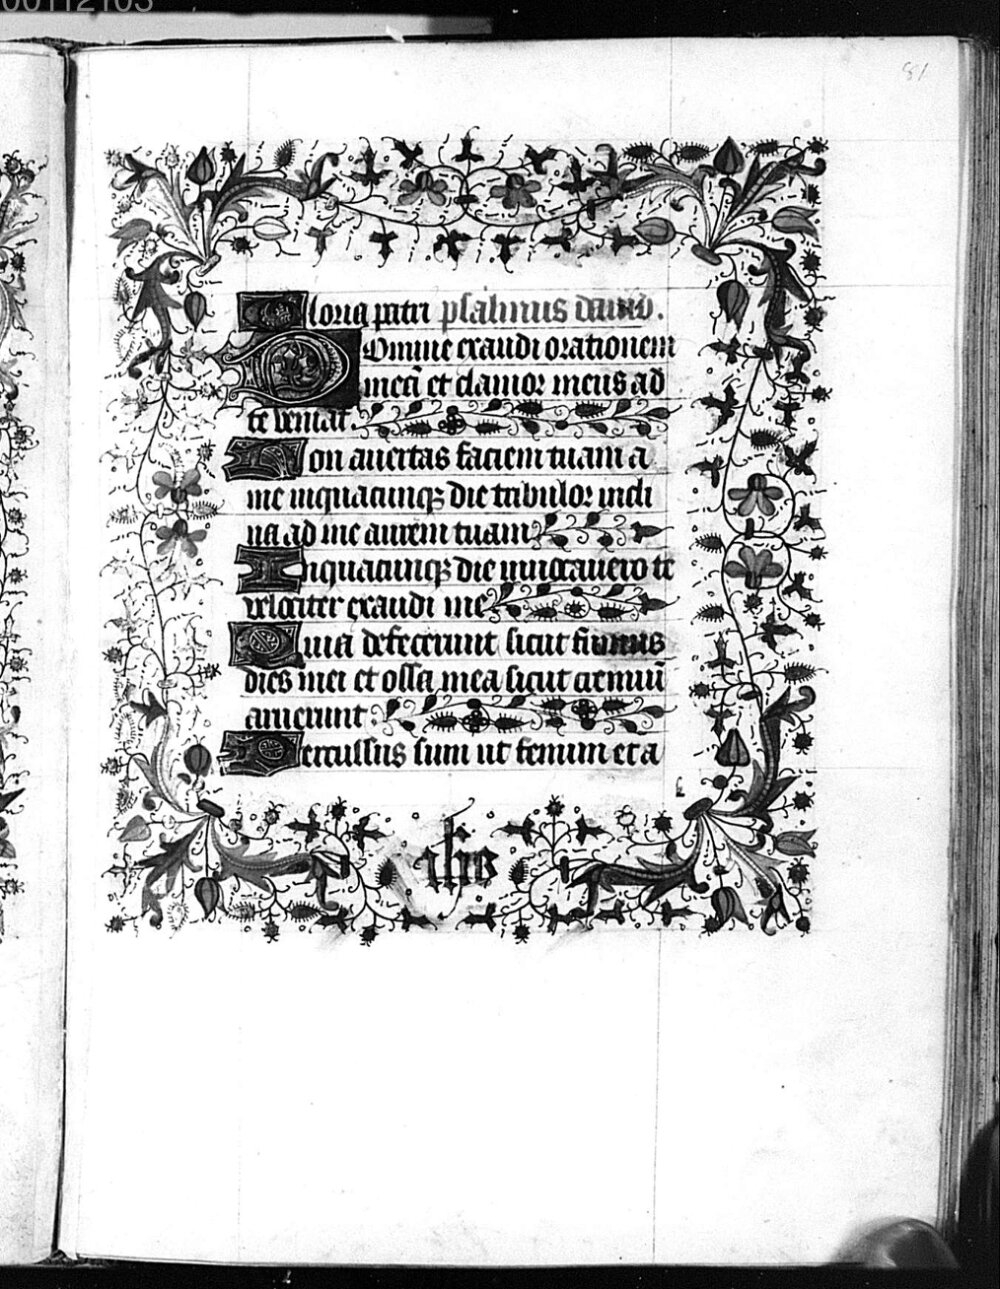 00112103
81
Gloria patri psalmus david.
Domine exaudi orationem
meā et clamor meus ad
te veniat.
Non avertas faciem tuam a
me inquacunqꝫ die tribulor incli
na ad me aurem tuam
Inquacunqꝫ die invocavero te
velociter exaudi me
Quia defecerunt sicut fumus
dies mei et ossa mea sicut cremiū
aruerunt:
Percussus sum ut fenum et a
ihs